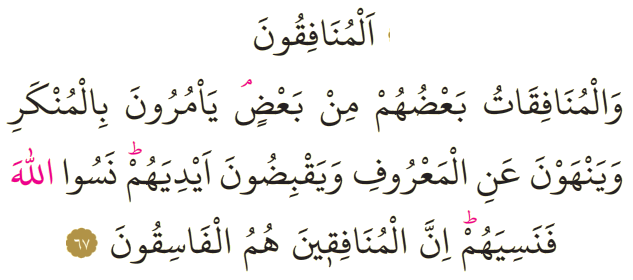 اَلْمُنَافِقُونَ
وَالْمُنَافِقَاتُ بَعْضُهُمْ مِنْ بَعْضٍۢ يَاْمُرُونَ بِالْمُنْكَرِ
وَيَنْهَوْنَ عَنِ الْمَعْرُوفِ وَيَقْبِضُونَ اَيْدِيَهُمْۜ نَسُوا اللّٰهَ
فَنَسِيَهُمْۜ اِنَّ الْمُنَافِق۪ينَ هُمُ الْفَاسِقُونَ ٦٧